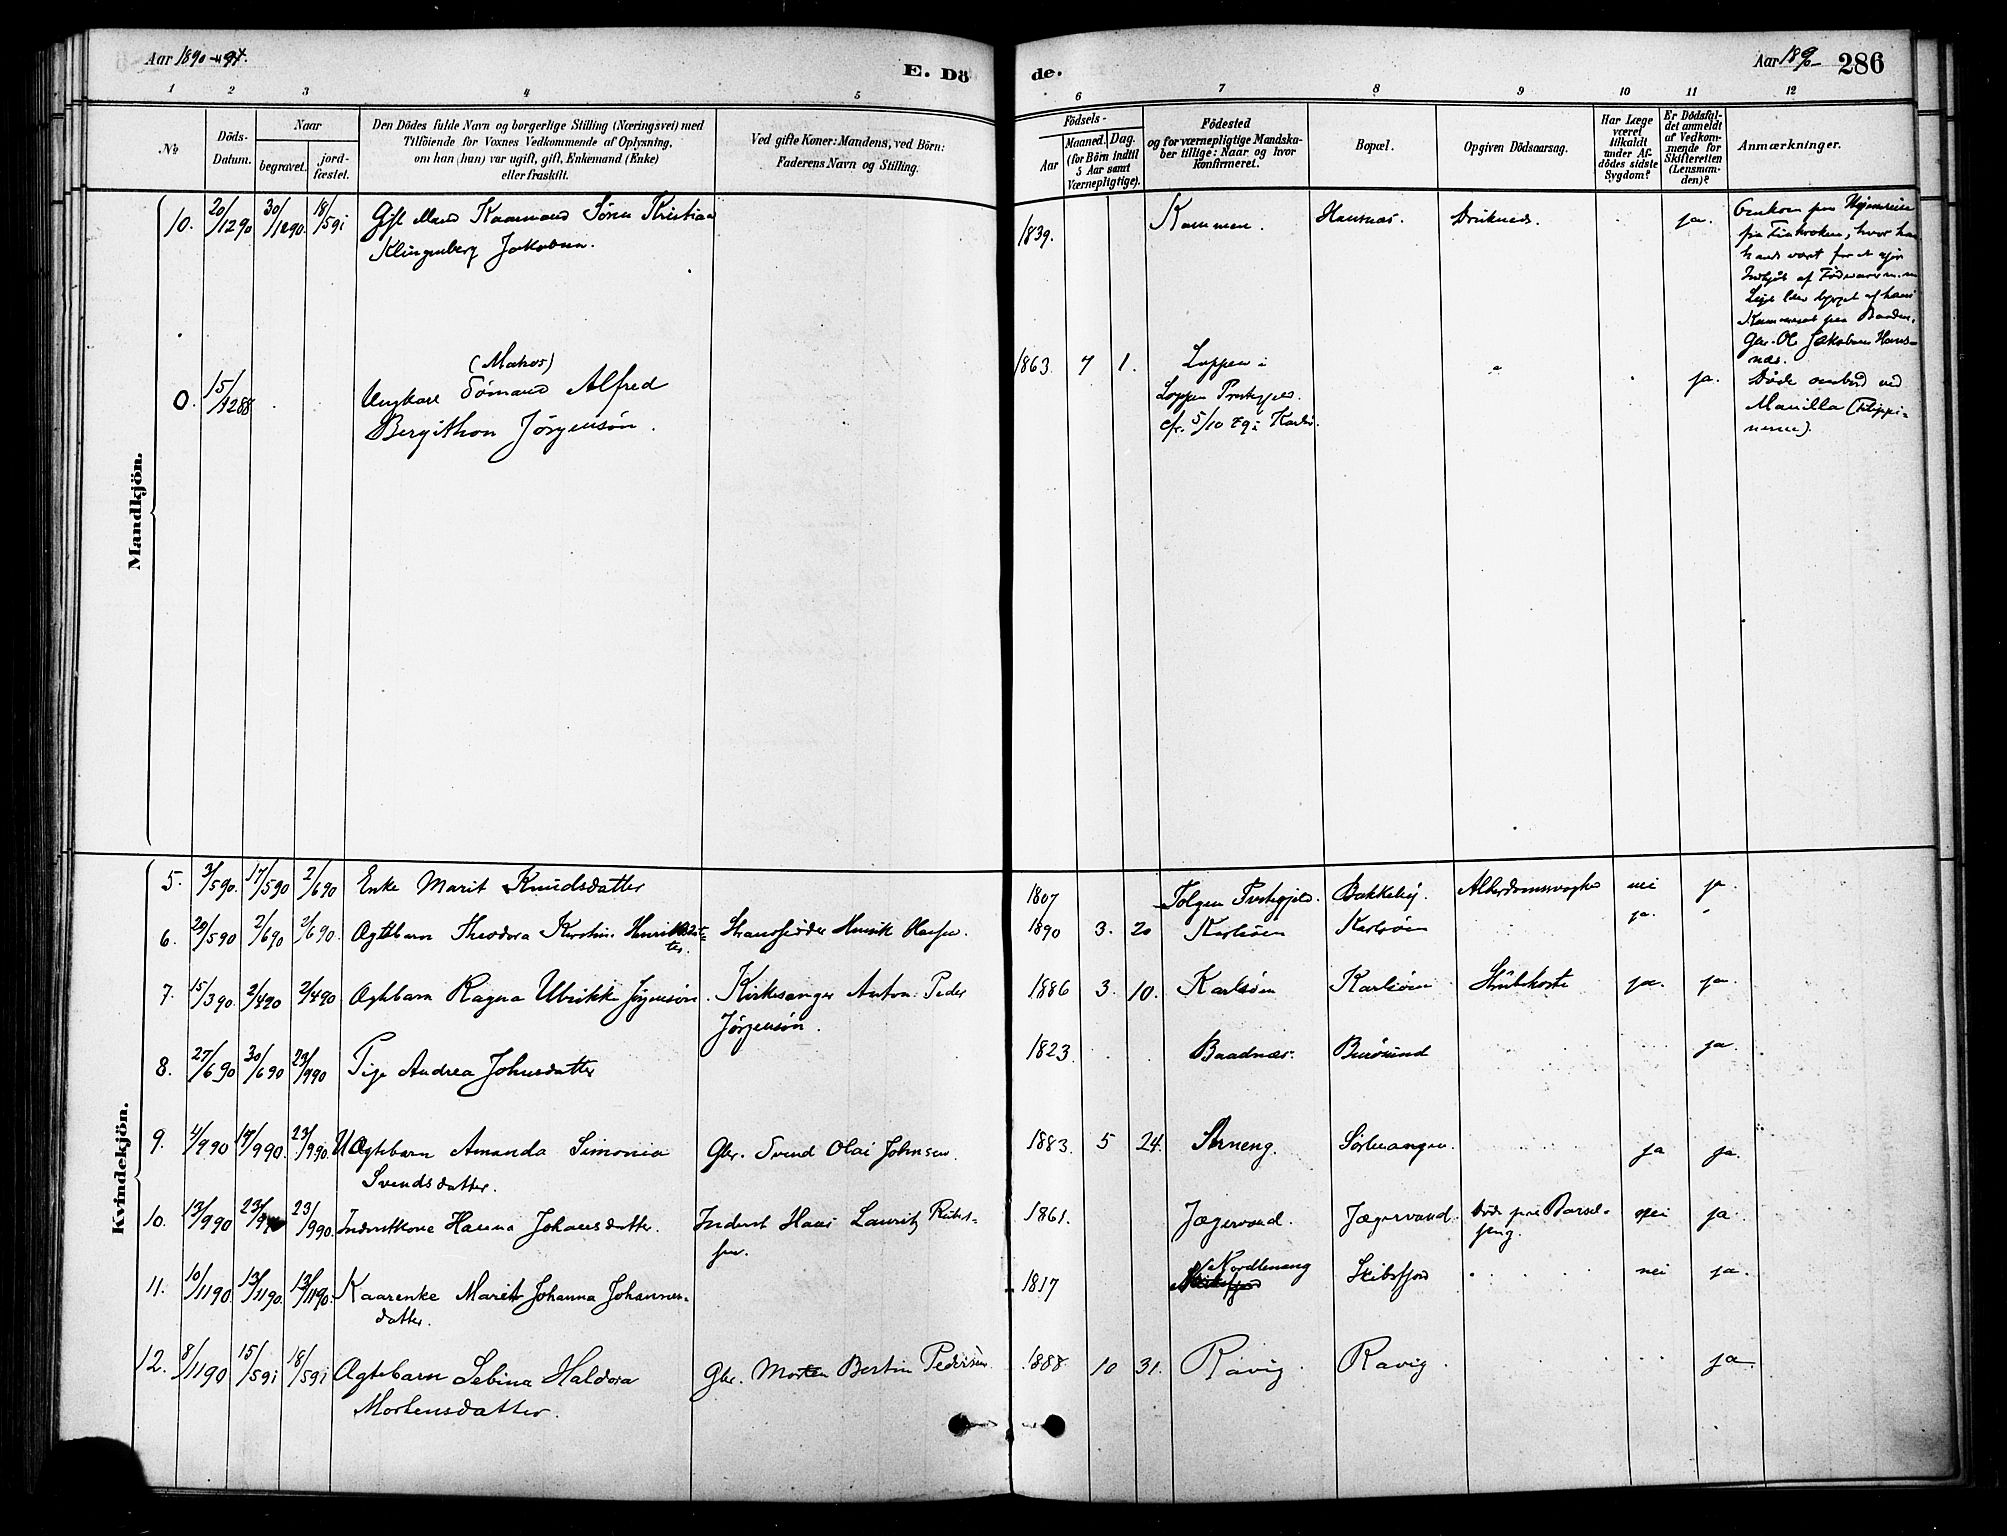 Aar 1890-94.
E. Dö
de.
Aar 1890-
286
1 2 3 4 5 6 7 8 9 10 11 12
No
Döds-
Datum.
Naar
begravet.
jord-
fæstet.
Den Dödes fulde Navn og borgerlige Stilling (Næringsvei) med
Tilföiende for Voxnes Vedkommende af Oplysning,
om han (hun) var ugift, gift, Enkemand (Enke)
eller fraskilt.
Ved gifte Koner: Mandens, ved Börn:
Faderens Navn og Stilling.
Födsels-
Aar
Maaned.
Dag.
(for Börn indtil
5 Aar samt
Værnepligtige).
Födested
og for værnepligtige Mandska-
ber tillige: Naar og hvor
konfirmeret.
Bopæl.
Opgiven Dödsaarsag.
Har Læge
været
tilkaldt
under Af-
dödes sidste
Sygdom?
Er Dödsfal-
det anmeldt
af Vedkom-
mende for
Skifteretten
(Lensman-
den)?
Anmærkninger.
Mandkjön.
10. 20/12 90 30/12 90. 18/5 91 Gift Mand Kaarmand Sören Kristian
Klingenberg Jakobsen.
1839. Kammen. Hansnæs. Druknede. ja. Omkom paa Hjemreise
fra Finkroken, hvor han
havde været for at gjøre
Indkjøb af Fødevarer m.m.
Kammerat paa Baaden,
Gbr. Ol. Jakobsen Hans-
næs.
0. 15/12 88 (Matros)
Ungkarl Sömand Alfred
Bergithon Jörgensön.
1863. 7 1. Loppen i
Loppen Prestegjeld.
cfr. 5/10 79 i Karlsö.
ja. Döde ombord ved
Manilla (Filippi-
nerne).
Kvindekjön.
5. 3/5 90. 17/5 90 2/6 90 Enke Marit Knudsdatter
1807 Tolgen Prestegjeld. Bakkeby. Alderdomssvaghed nei ja.
6. 29/5 90 2/6 90 2/6 90. Ægtebarn Theodora Kirstine Henriksdat-
ter. Strandsidder Henrik Hansen.
1890 3. 20 Karlsöen Karlsöen ja. "
7. 15/3 90. 2/4 90 2/4 90 Ægtebarn Ragna Ulrikke Jörgensön. Kirkesanger Anton Peder
Jörgensön.
1886 3. 10. Karlsöen Karlsöen Strubehoste ja. ja.
8. 27/6 90 30/6 90 23/9 90 Pige Andrea Johnsdatter
1823. Baadnæs. Burösund ja.
9. 4/9 90 19/9 90. 23/9 90. Uægtebarn Amanda Simonia
Svendsdatter.
Gbr. Svend Olai Johnsen.
1883. 5 24. Steneng. Sörlenangen. ja ja.
10. 13/9 90 23/9 90 23/9 90. Inderstkone Hanna Johansdatter. Inderst Hans Lauritz
sen.
1861. Jægervand. Jægervand. Döde paa Barsel-
seng. nei ja.
11. 10/11 90 13/11 90. 13/11 90. Kaarenke Marit Johanna Johannes-
datter.
1817 Nordlenang
Skibsfjord Skibsfjord nei ja.
12. 8/11 90 15/5 91 18/5 91 Ægtebarn Sebina Haldora
Mortensdatter.
Gbr. Morten Bertin Pedersen.
1888. 10 31. Ravig. Ravig. ja.